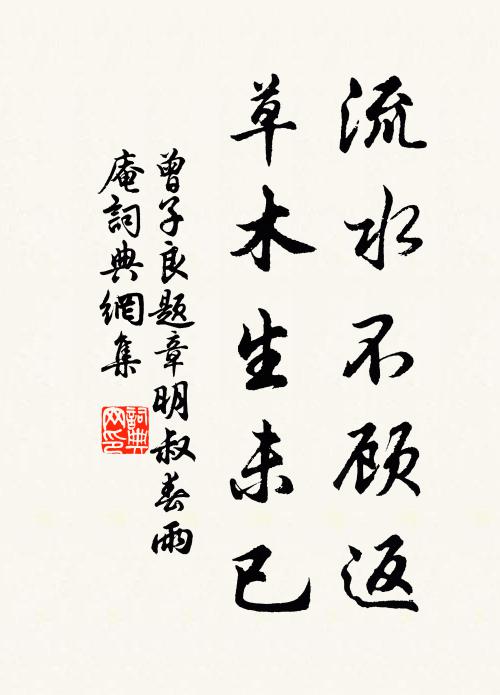 流水不顾返
草木生未已
曾子良题章明叔春雨
庵詞典網集
詞典
网印